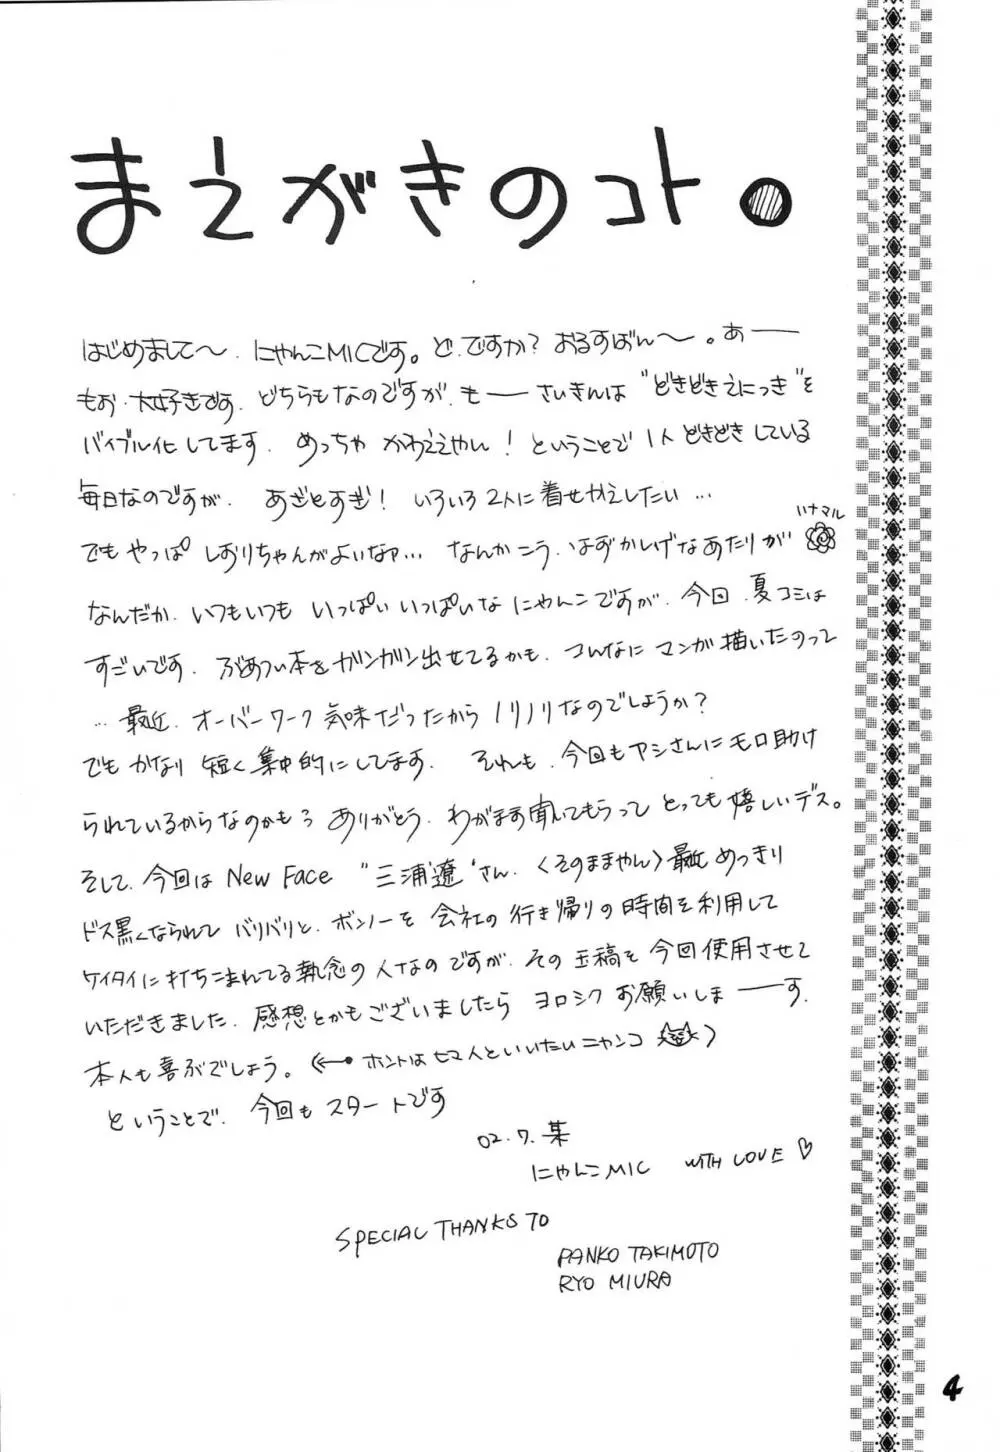 まえがきのコト。
はじめまして〜。にゃんこMICです。ど、ですか？おるすばん〜。あー
もお、大好きです。どちらもなのですが、もーさいきんは“どきどきえにっき”を
バイブル化してます。めっちゃかわええやん！ということで1人どきどきしている
毎日なのですが、あざとすぎ！いろいろ2人に着せかえしたい…
ハナマル
でもやっぱしおりちゃんがよいなァ…なんかこう、はずかしげなあたりが
なんだか、いつもいつもいっぱいいっぱいなにゃんこですが、今回、夏コミは
すごいです。ぶあつい本をガンガン出せてるかも。こんなにマンガ描いたのって
…最近、オーバーワーク気味だったからノリノリなのでしょうか？
でもかなり短く集中的にしてます。それも、今回もアシさんにモロ助け
られているからなのかもう ありがとう、わがまま聞いてもらってとっても嬉しいデス。
そして、今回はNew Face “三浦遼”さん、〈そのままやん〉最近めっきり
ドス黒くなられてバリバリと、ボンノーを会社の行き帰りの時間を利用して
ケイタイに打ちこまれてる執念の人なのですが、その玉稿を今回使用させて
いただきました。感想とかもございましたらヨロシクお願いしまーす。
本人も喜ぶでしょう。(←ホントは七マ人といいたいニャンコ)
ということで、今回もスタートです
02.7.某
にゃんこMIC WITH LOVE♡
SPECIAL THANKS TO
PANKO TAKIMOTO
RYO MIURA
4